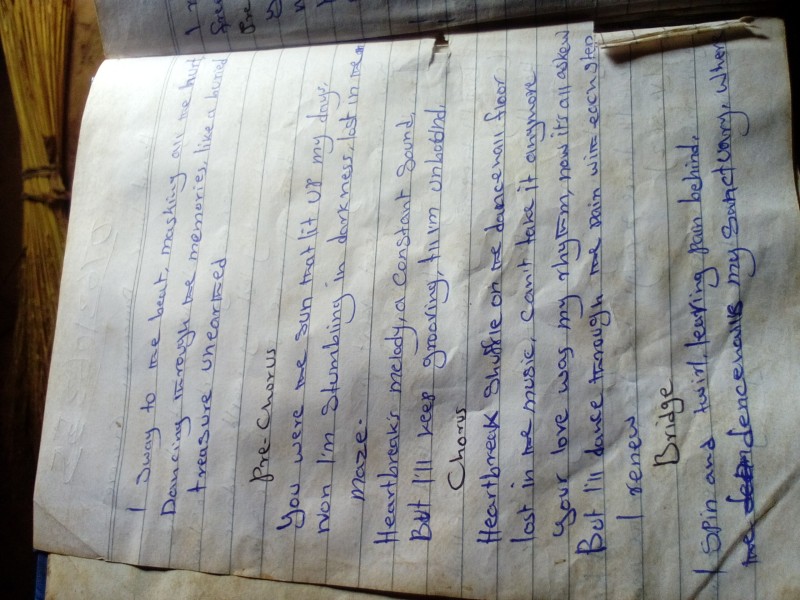 I sway to the beat, masking all the hurt
Dancing through the memories, like a buried
treasure unearthed
Pre-Chorus
You were the sun that lit up my days,
Now I'm stumbling in darkness, lost in the
maze.
Heartbreak's melody, a constant sound,
But I'll keep grooving, till I'm unbound.
Chorus
Heartbreak shuffle on the dancehall floor
lost in the music, can't take it anymore
Your love was my rhythm, now it's all askew
But I'll dance through the pain with each step
I renew
Bridge
I spin and twirl, leaving pain behind,
The dancehalls my sanctuary, where